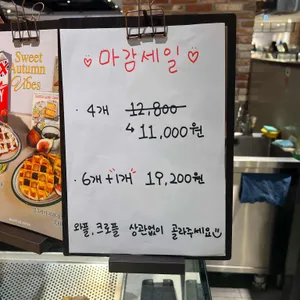 Sweet
Autumn
Vibes
마감세일
· 4개 12,800
↳ 11,000원
· 6개 +1개 19,200원
와플, 크로플 상관없이 골라주세요